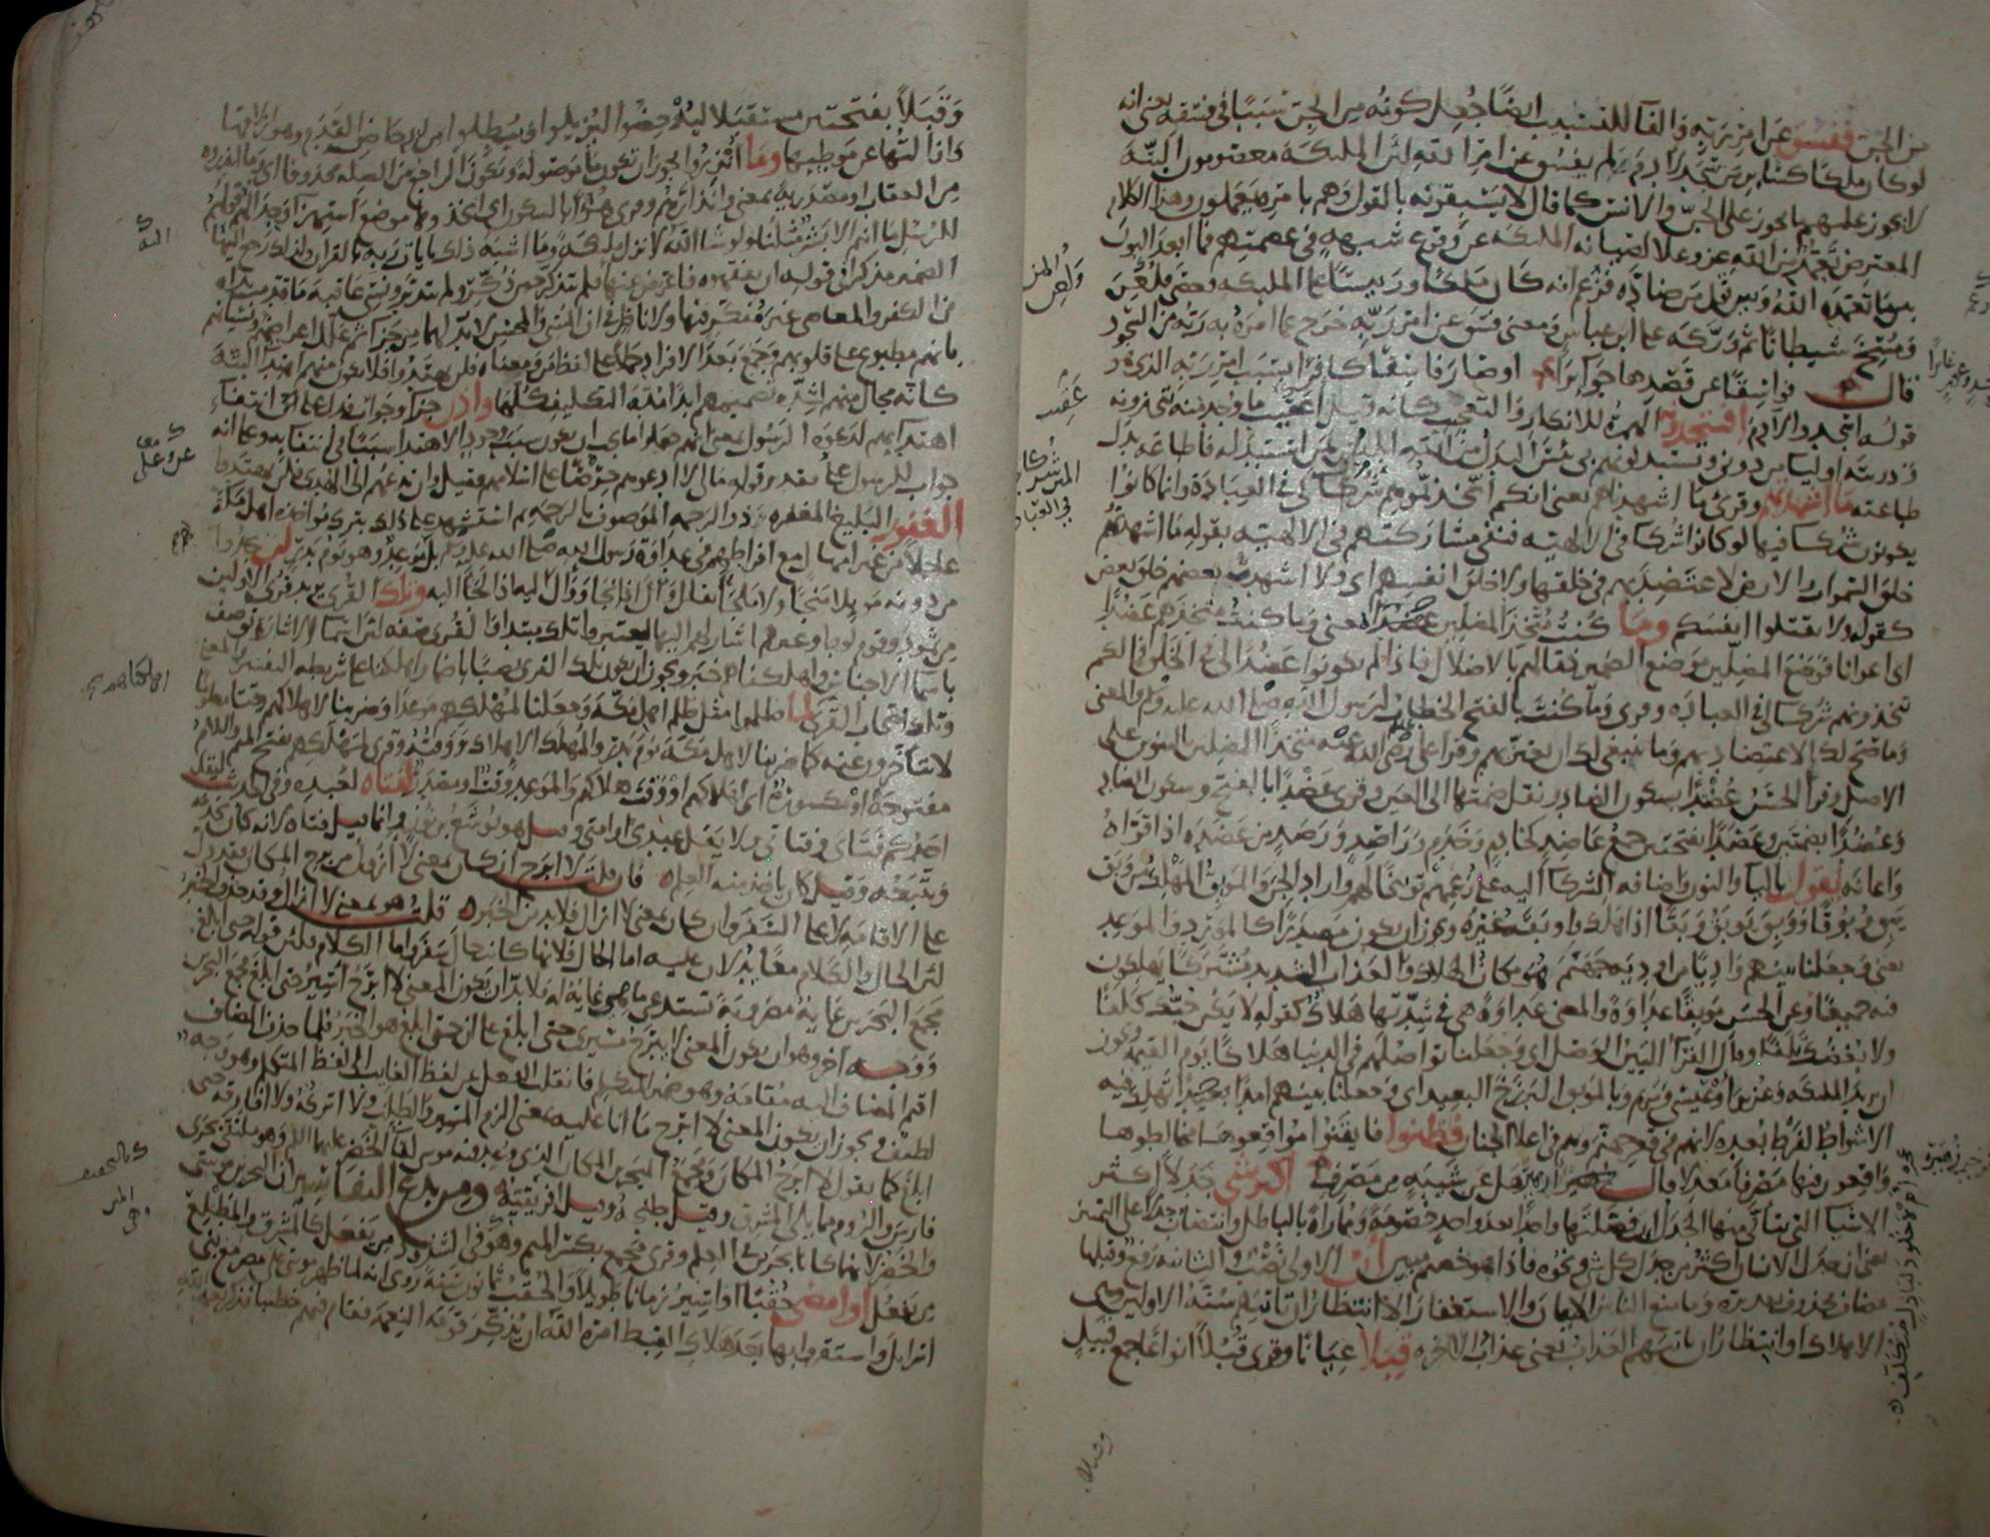 من الجن ففسق عن امر ربه والفا للتسبيب ايضا جعل كونه من الجن سببا في فسقه يعني انه
لو كان ملكا كسائر من سجد لادم لم يفسق عن امر الله لان الملئكة معصومون البتة
لا يجوز عليهم ما يجوز على الجن والانس كما قال لا يسبقونه بالقول وهم بامره يعملون وهذا الكلام
المعترض تعمد من الله عز وعلا لصيانه الملئكه عن وقوع شبهه في عصمتهم فما ابعد البون
بين ما تعمده الله وبين قول من ضاده فزعم انه كان ملكا ورييسا على الملئكه فعصى فلعن
ومسخ شيطانا ثم وركه على ابن عباس ومعنى فسق عن امر ربه خرج عما امره به ربه من السجود
قال فواسقا عن قصدها جوائرا او صار فاسقا كافرا بسبب امر ربه الذي هو
قوله اسجدوا لآدم افتتخذونه الهمزة للانكار والتعجيب كانه قيل اعقيب ما وجد منه تتخذونه
وذريته اوليا من دوني وتستبدلونهم بي بئس البدل من الله ابليس لمن استبدله فاطاعه بدل
طاعته ما اشهدتهم وقرئ ما اشهدناهم يعني انكم اتخذتموهم شركا لي في العبادة وانما كانوا
يكونون شركا فيها لو كانوا شركا في الالهية فنفى مشاركتهم في الالهيه بقوله ما اشهدتهم
خلق السموات والارض لاعتضد بهم في خلقها ولا خلق انفسهم اي ولا اشهدت بعضهم خلق بعض
كقوله ولا تقتلوا انفسكم وما كنت متخذ المضلين عضدا بمعنى وما كنت متخذهم عضدا
اي اعوانا فوضع المضلين موضع الضمير ذما لهم بالاضلال فاذا لم يكونوا عضدا لي في الخلق فما لكم
تتخذونهم شركا لي في العباده وقرئ وما كنت بالفتح الخطاب لرسول الله صلى الله عليه وسلم والمعنى
وما صح لك الاعتضاد بهم وما ينبغي لك ان تعتز بهم وقرأ علي رضي الله عنه متخذا المضلين بالتنوين على
الاصل وقرأ الحسن عضدا بسكون الضاد ونقل ضمتها الى العين وقرئ عضدا بالفتح وسكون الضاد
وعضدا بضمتين وعضدا بفتحتين جمع عاضد كخادم وخدم وراصد ورصد من عضده اذا قواه
واعانه يقول باليا والنون واضافه الشركا اليه على زعمهم توبيخا لهم واراد الجن والموبق المهلك من وبق
يبق وبوقا ووبق يوبق وبقا اذا هلك واوبقه غيره ويجوز ان يكون مصدرا كالمورد والموعد
يعني وجعلنا بينهم واديا من اوديه جهنم هو مكان الهلاك والعذاب الشديد مشتركا يهلكون
فيه جميعا وعن الحسن موبقا عداوة والمعنى عداوة هي في شدتها هلاك كقوله لا يكن حبك كلفا
ولا بغضك تلفا وقال الفرآ البين الوصل اي وجعلنا تواصلهم في الدنيا هلاكا يوم القيمه ويجوز
ان يريد الملئكة وعزيرا وعيسى ومريم وبالموبق البرزخ البعيد اي وجعلنا بينهم امدا بعيدا تهلك فيه
الاشواط لفرط بعده لانهم في قعر جهنم وهم في اعلا الجنان فظنوا فايقنوا مواقعوها مخالطوها
واقعون فيها مصرفا معدلا قال ازهير هل عن شيبه من مصرف اكثر شيء جدلا اكثر
الاشيا التي يتاتى منها الجدال ان فصلتها واحدا بعد واحد خصومة ومماراة بالباطل وانتصاب جدلا على التمييز
يعني ان جدل الانسان اكثر من جدل كل شيء ونحوه فاذا هو خصيم مبين ان الاولى نصب والثانيه رفع وقبلها
مضاف محذوف تقديره وما منع الناس الايمان والاستغفار الا انتظار ان تاتيهم سنة الاولين وهي
الاهلاك او انتظار ان ياتيهم العذاب يعني عذاب الاخره قبلا عيانا وقرئ قبلا انواعا جمع قبيل
وقبلا بفتحتين مستقبلا ليدحضوا ليزيلوا ويبطلوا من ادحاض القدم وهو ازلاقها
وازالتها عن موطيها وما انذروا يجوز ان تكون ما موصوله ويكون الراجع من الصله محذوفا اي وما انذروه
من العقاب او مصدريه بمعنى وانذارهم وقرئ هزءا بالسكون اي اتخذوها موضع استهزآ وجدالهم قولهم
للرسل ما انتم الا بشر مثلنا ولو شا الله لانزل ملئكة وما اشبه ذلك بايات ربه بالقران ولذلك رجع اليها
الضمير مذكرا في قوله ان يفقهوه فاعرض عنها فلم يتذكر حين ذكر ولم يتدبر ونسي عاقبة ما قدمت يداه
من الكفر والمعاصي غير مفكر فيها ولا ناظر في ان المسيء والمحسن لا بد لهما من جزآ ثم علل اعراضهم ونسيانهم
بانهم مطبوع على قلوبهم وجمع بعد الافراد حملا على لفظ من ومعناه فلن يهتدوا فلا يكون منهم اهتدآ البتة
كانه محال منهم لشدة تصميمهم ابدا مدة التكليف كلها واذن جزآ وجواب فدل على انتفاء
اهتدايهم لدعوة الرسول بمعنى انهم جعلوا ما يجب ان يكون سبب وجود الاهتدا سببا في انتفايه وعلى انه
جواب للرسول على تقدير قوله ما لي لا ادعوهم حرصا على اسلامهم فقيل وان تدعهم الى الهدى فلن يهتدوا
الغفور البليغ المغفره ذو الرحمه الموصوف بالرحمه ثم استشهد على ذلك بترك مواخذه اهل مكة
عاجلا من غير امهال مع افراطهم في عداوة رسول الله صلى الله عليه وسلم بل لهم موعد وهو يوم بدر لن يجدوا
من دونه مويلا منجا ولا ملجا يقال وال اذا نجا ووال اليه اذا لجا اليه وتلك القرى يريد قرى الاولين
من ثمود وقوم لوط وغيرهم اشار لهم اليها ليعتبروا تلك مبتدا والقرى صفه لان اسما الاشارة توصف
باسما الاجناس واهلكناهم خبر ويجوز ان يكون تلك القرى نصبا باضمار اهلكنا على شريطه التفسير والمعنى
وتلك اصحاب القرى لما ظلموا مثل ظلم اهل مكة وجعلنا لمهلكهم موعدا وضربنا لاهلاكهم وقتا معلوما
لا يتأخرون عنه كما ضربنا لاهل مكة يوم بدر والمهلك الاهلاك ووقته وقرئ لمهلكهم بفتح الميم واللام
مفتوحة او مكسورة اي لهلاكهم او وقت هلاكهم والموعد وقت او مصدر لفتاه لعبده وفي الحديث ليقل
احدكم فتاي وفتاتي ولا يقل عبدي وامتي وقيل هو يوشع بن نون وانما قيل فتاه لانه كان يخدمه
ويتبعه وقيل كان ياخذ منه العلم فان قلت لا ابرح ان كان بمعنى لا ازول من برح المكان فقد دل
على الاقامه لا على السفر وان كان بمعنى لا ازال فلا بد من الخبر قلت هو بمعنى لا ازال وقد حذف الخبر
لان الحال والكلام معا يدلان عليه اما الحال فلانها كانت حال سفر واما الكلام فلان قوله حتى ابلغ
مجمع البحرين غاية مضروبة تستدعي ما هي غاية له فلا بد ان يكون المعنى لا ابرح اسير حتى ابلغ مجمع البحرين
ووجه آخر وهو ان يكون المعنى لا يبرح مسيري حتى ابلغ على ان حتى ابلغ هو الخبر فلما حذف المضاف
اقيم المضاف اليه مقامه وهو ضمير المتكلم فانقلب الفعل عن لفظ الغايب الى لفظ المتكلم وهو وجه
لطيف ويجوز ان يكون المعنى لا ابرح ما انا عليه بمعنى الزم المسير والطلب ولا اتركه ولا افارقه حتى
ابلغ كما تقول لا ابرح المكان ومجمع البحرين المكان الذي وعد فيه موسى لقآ الخضر عليهما السلم وهو ملتقى بحري
فارس والروم مما يلي المشرق وقيل طنجه وقيل افريقية ومن بدع التفاسير ان البحرين موسى
والخضر لانهما كانا بحرين في العلم وقرئ مجمع بكسر الميم وهو في الشذوذ من يفعل كالمشرق والمطلع
من يفعل او امضي حقبا او اسير زمانا طويلا والحقب ثمانون سنة روي انه لما ظهر موسى على مصر مع بني
اسرايل واستقروا بها بعد هلاك القبط امره الله ان يذكر قومه النعمة فقام فيهم خطيبا فذكر نعمة الله